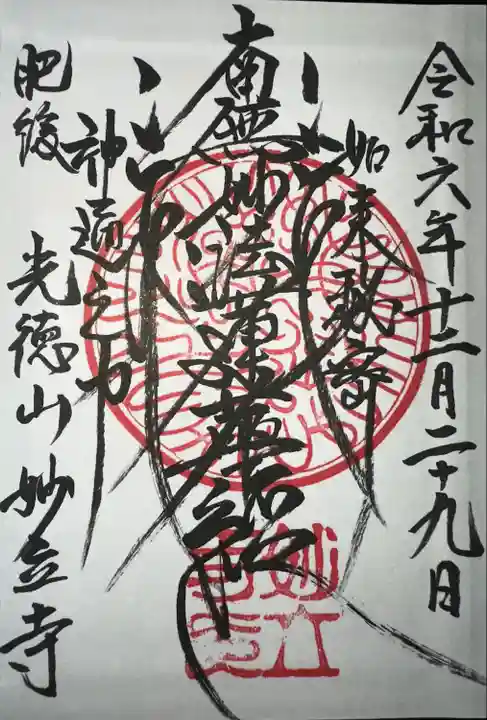 令和六年十二月二十九日
如来秘密
南無妙法蓮華経
神通之力
肥後 光徳山 妙立寺